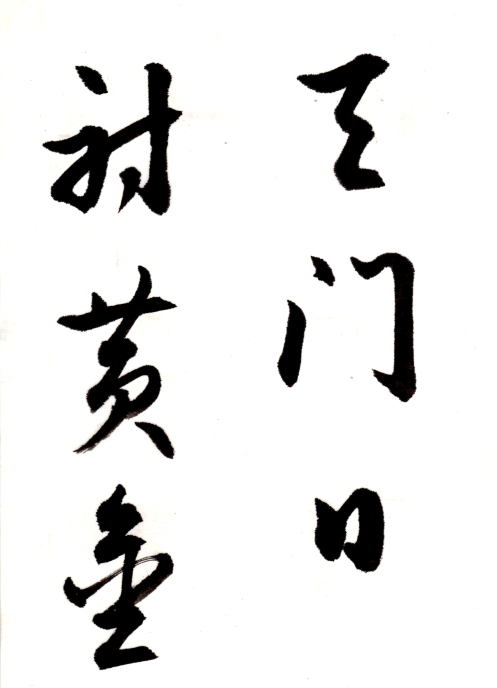 天门日
射黄金